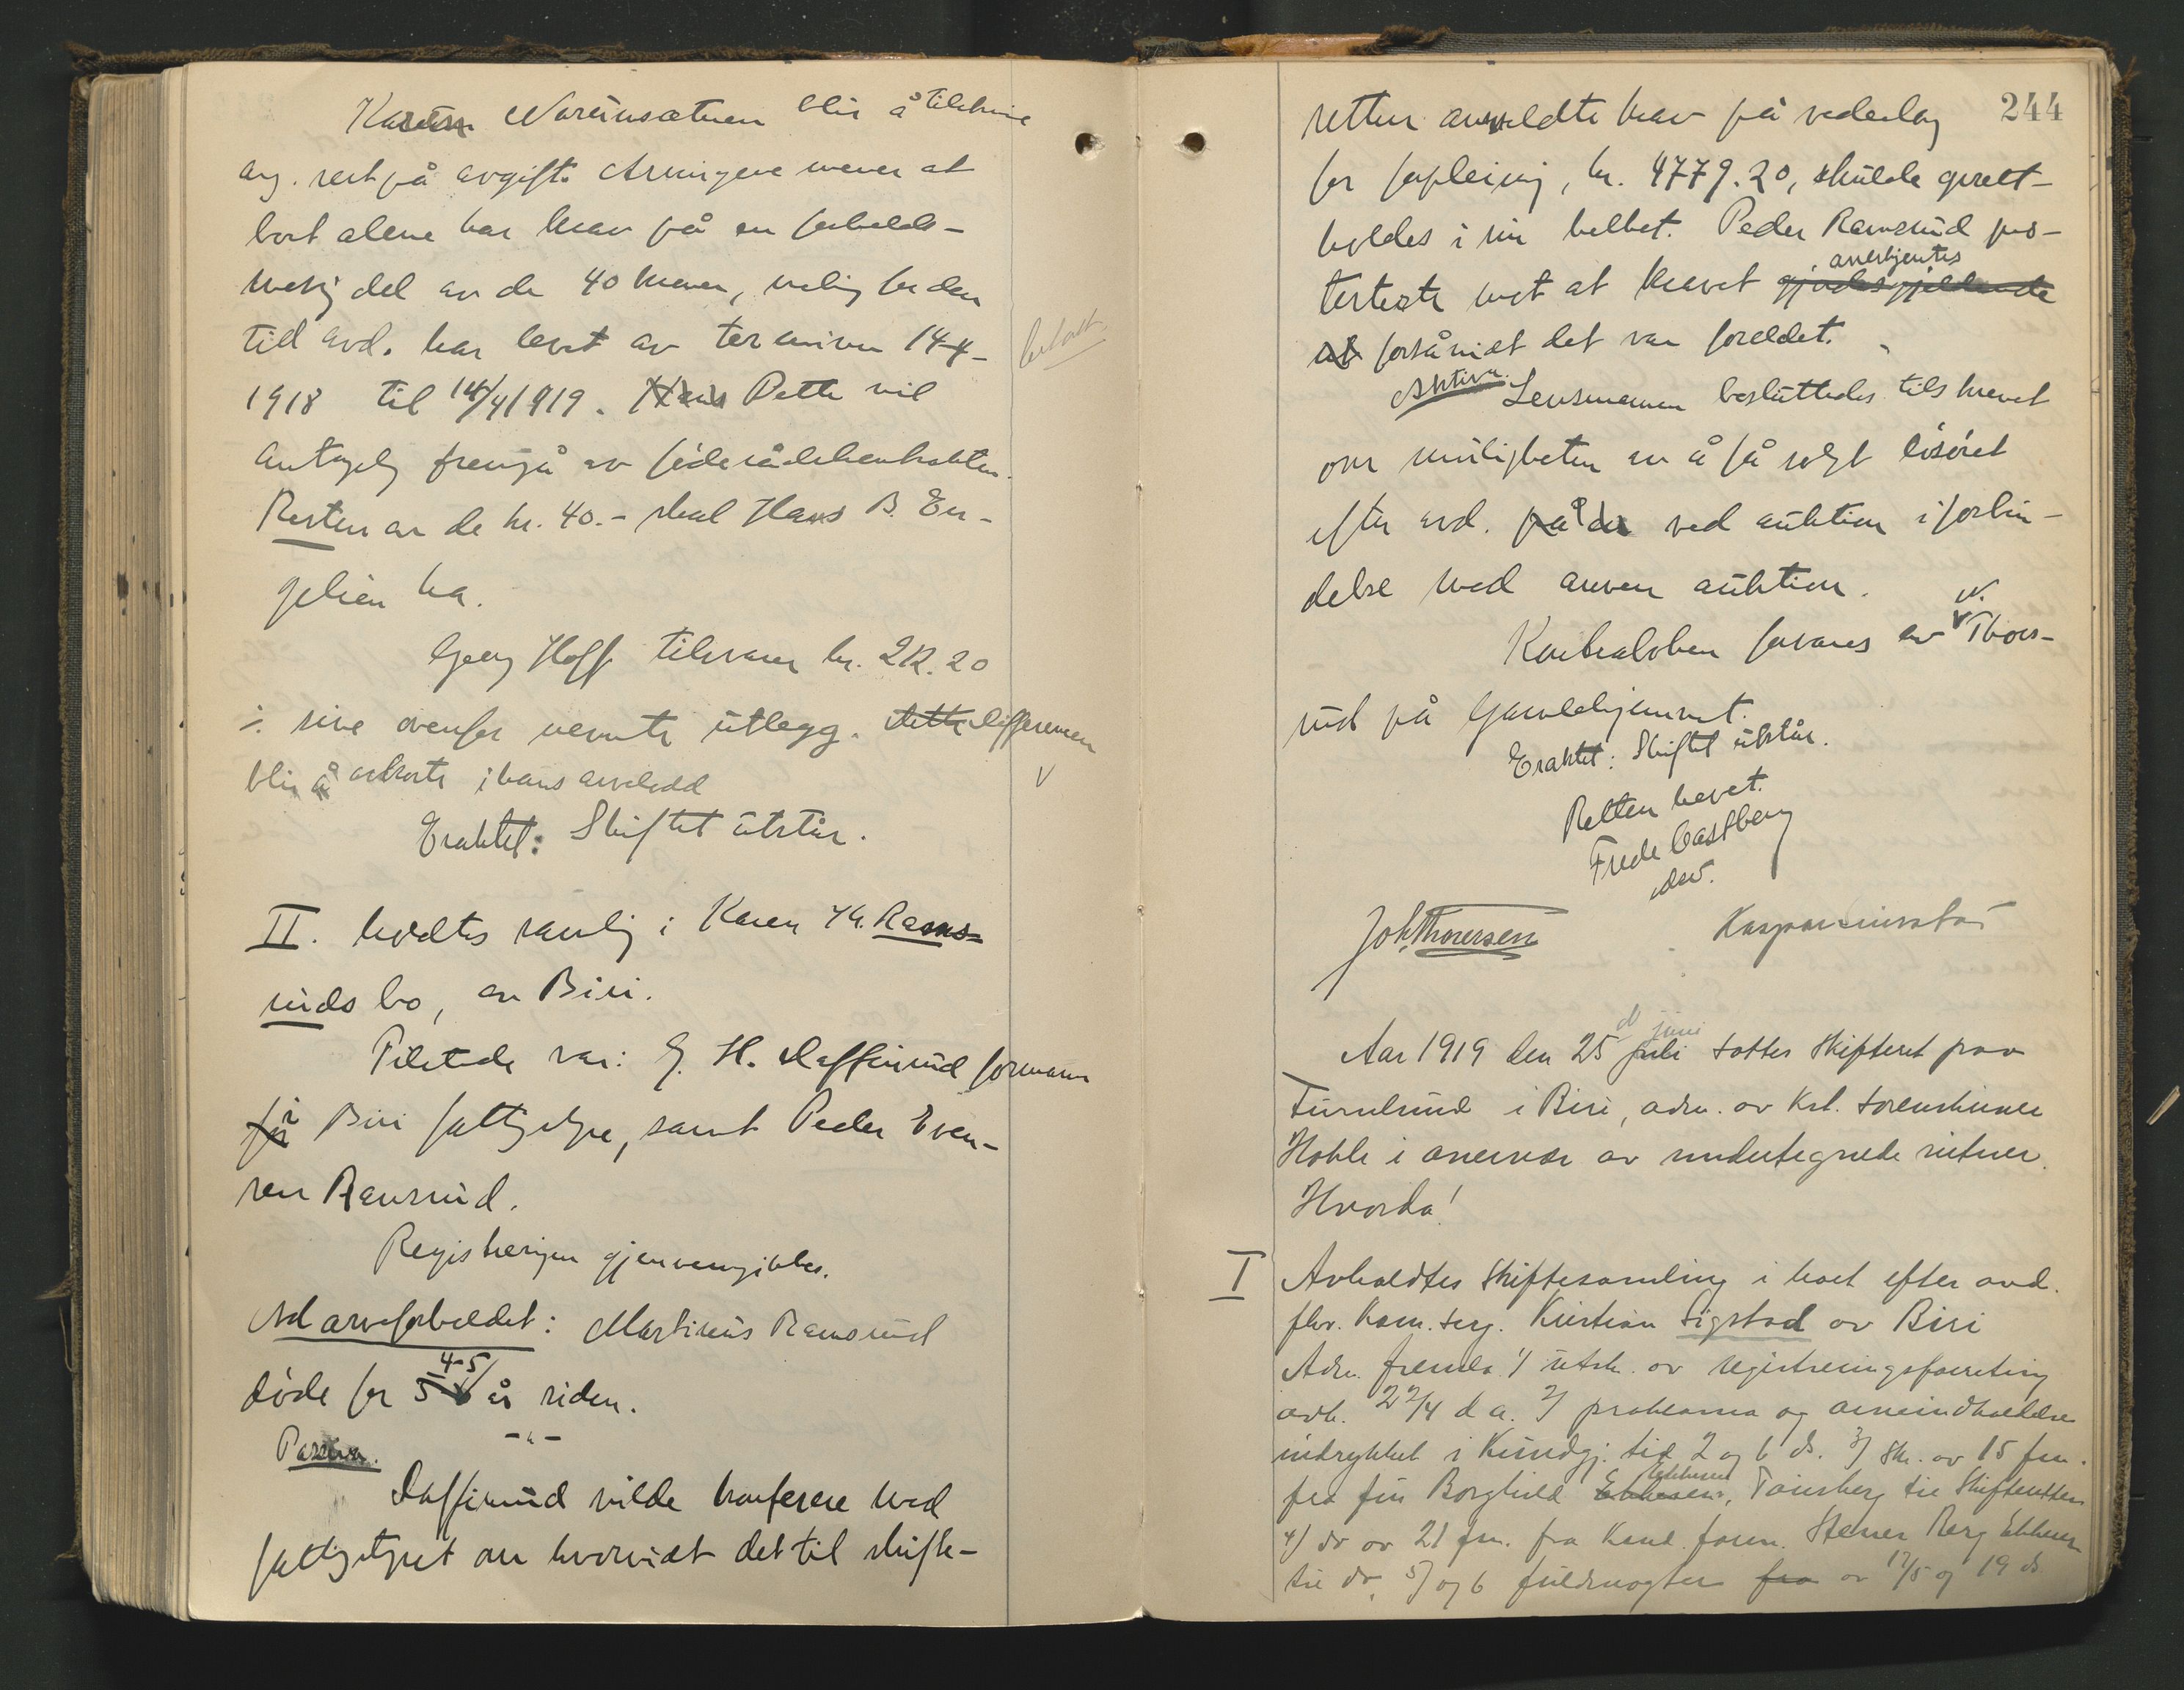 Karen Nereinsætuen blir å tilskrive
ang. rest på avgift. Arvingene mener at
boet alene har krav på en forholds-
messig del av de 40 kroner, nemlig for den
tid avd. har levet av terminen 14-4-
1918 til 14/4 1919. Hans Dette vil
antagelig fremgå av føderådskontrakten.
Resten av de kr. 40.- skal Hans B. En-
gelien ha.
Georg Hoff tilsvarer kr. 212.20
÷ sine ovenfor nevnte utlegg. Dette Differencen
blir å avkorte i hans arvelodd
Eraktet: Skiftet utstår.
II. holdtes samling i Karen Th. Rams-
ruds bo, av Biri.
Tilstede var: G. H. Daffinrud formann
for i Biri fattigstyre, samt Peder Even-
sen Ramsrud.
Registreringen gjennemgikkes.
Ad arveforholdet: Martinus Ramsrud
døde for 5 6 4-5 år siden.
- " -
Passiva.
Daffinrud vilde konferere med
fattigstyret om hvorvidt det til skifte-
betalt
V
244
retten anmeldte krav på vederlag
for forpleining, kr. 4779.20, skulde oprett-
holdes i sin helhet. Peder Ramsrud pro-
testerte mot at kravet gjordes gjeldende anerkjentes
ut forsåvidt det var foreldet.
Aktiva. Lensmannen besluttedes tilskrevet
om muligheten av å få solgt løsøret
efter avd. på de ved auktion i forbin-
delse med annen auktion.
Kontrabok forvares av V. Thors-
rud på Gamlehjemmet.
Eraktet: Skiftet utstår.
Retten hevet.
Frede Castberg
edsv.
Joh. Thoresen
Aar 1919 den 25 juli d juni sattes skifteret paa
Furulund i Biri, adm. av Kst. sorenskriver
Hohle i overvær av undertegnede vitner.
Hvorda!
I Avholdtes skiftesamling i boet efter avd.
fhv. Kom. serg. Kristian Sigstad av Biri
Adm. fremla 1/ utsk. av registreringsforretning
avh. 22/4 d a. 2/ proklama og arveindkaldelse
indrykket i Kundgj. tid 2 og 6 ds. 3/ Skr. av 15 fm.
fra frú Borghild Ebbesen Ebbesen, Tønsberg til Skifteretten
4/ do av 21 fm. fra Kand. farm. Stener Berg Ebbesen
til do. 5/ og 6 fuldmagter fra av 17/5 og 19 ds